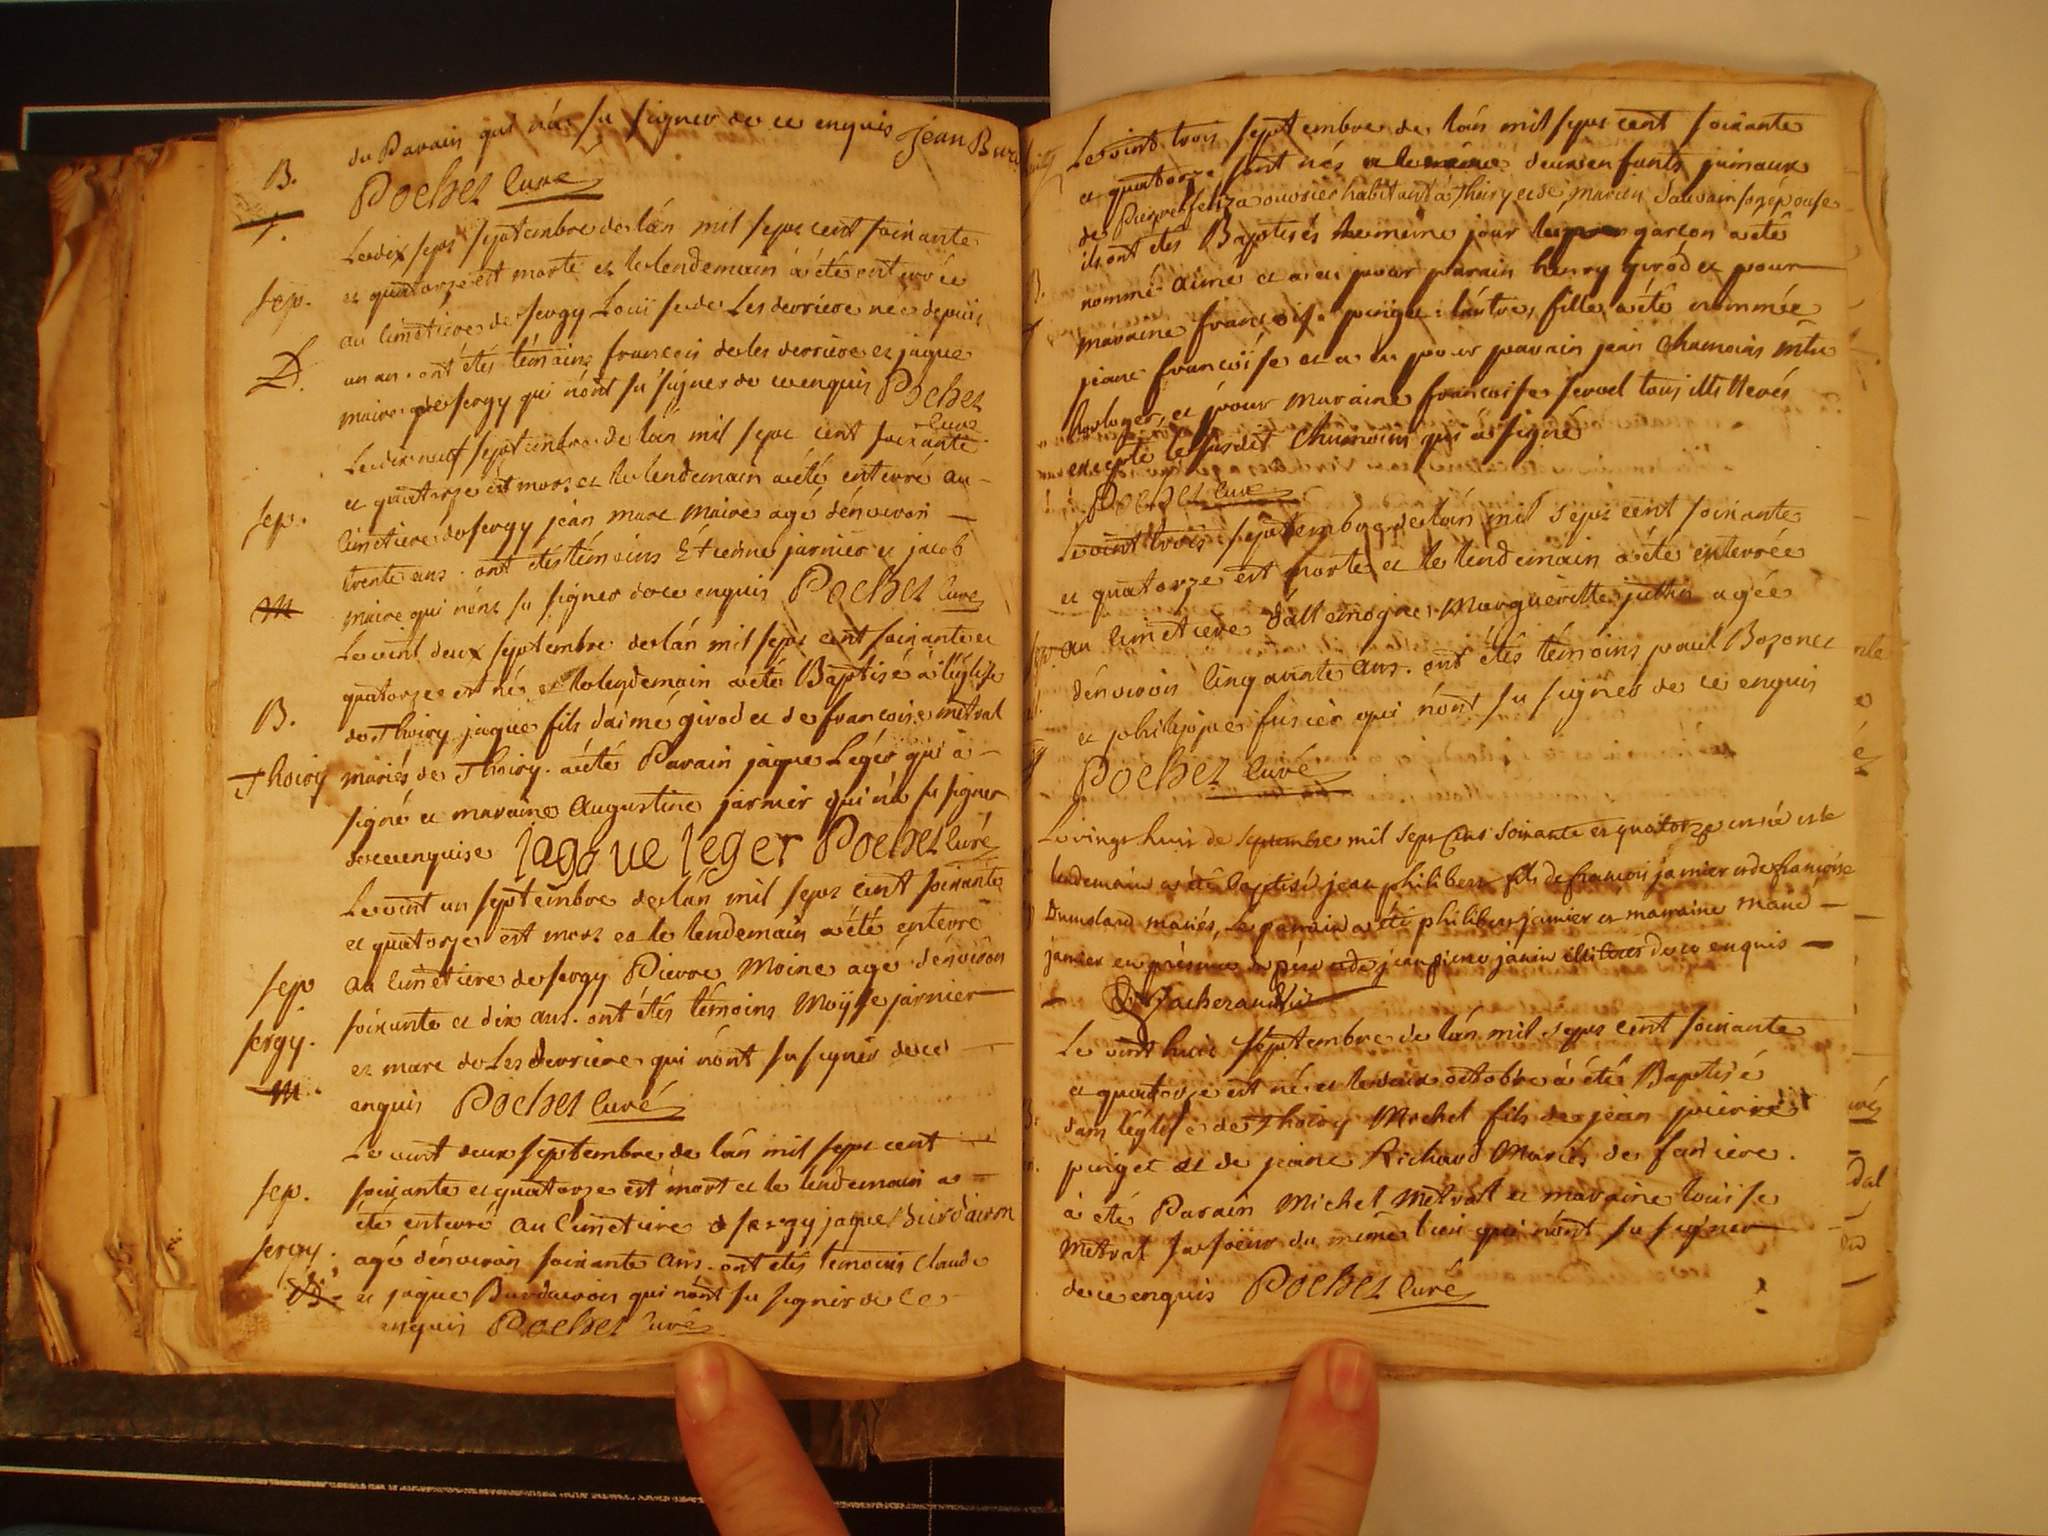 du Parain qui n'a su signer de ce enquis Jean Bur
B.
Pochet Curé
Le dix sept septembre de l'án mil sept cent soixante
et quatorze est morte et le lendemain a été enterrée
sep. au Cimetiere de sergy Louise de Les derriere née depuis
D. un an. ont étés témoins francois de les derriere et jaque
maire de sergy qui n'ónt su signer de ce enquis Pochet
Curé
Le dix neuf septembre de l'án mil sept cent soixante
et quatorze est mort et le lendemain a été enterré au
sep. Cimetiere de sergy jean marc Maire agé d'énviron
trente ans. ont étés témoins Etienne jarnier et jacob
M maire qui n'ónt su signer de ce enquis Pochet Curé
Le vint deux septembre de l'án mil sept cent soixante et
quatorze est né et le lendemain a été Baptisé à l'église
B. de Thoiry jaque fils d'aimé girod et de francoise métral
Thoiry mariés de Thoiry. a été Parain jaque Léger qui à
signé et maraine Augustine jarnier qui n'a su signer
de ce enquise jaqoue leger Pochet Curé
Le vint un septembre de l'án mil sept cent soixante
et quatorze est mort et le lendemain a été enterré
sep au Cimetiere de sergy Pierre Moine agé d'énviron
sergy. soixante et dix ans. ont étés témoins Moÿse jarnier
M. et marc de Les derriere qui n'ónt su signer de ce
enquis Pochet Curé
Le vint deux septembre de l'án mil sept cent
sep. soixante et quatorze est mort et le lendemain a
été enterré au Cimetiere de sergy jaque Burdairon
sergy. agé d'énviron soixante Ans. ont étés témoins Claude
et jaque Burdairon qui n'ónt su signer de ce
enquis Pochet Curé
Le vint trois septembre de l'án mil sept cent soixante
et quatorze sont nés deux enfants jumaux
de Pierre ouvrier habitant à Thoiry et de son épouse
ils ont étés Baptisés le meme jour le garcon a été
nommé Aimé et a eu pour parain henry girod et pour
maraine francoise pinget: l'autre, fille, a été nommée
jeane francoise et a eu pour parain jean Chamoin mtre
horloger, et pour maraine francoise tous illitterés
excepté le susdit Chamoin qui a signé
Pochet Curé
Le vint trois septembre de l'án mil sept cent soixante
et quatorze est morte et le lendemain a été enterrée
au Cimetiere d'allemogne Marguerite agée
d'énviron Cinquante Ans. ont étés témoins paul Bozonet
et philippe fusier qui n'ónt su signer de ce enquis
Pochet Curé
Le vingt huit de septembre mil sept Cens soixante et quatorze est né et le
lendemain a été baptisé jean philibert fils de francois jarnier et de francoise
Dumolard mariés, Le parrain a été philibert jarnier et marraine
jarnier en présence du père et de jean pierre janin illiterés de ce enquis
Le vint huit septembre de l'án mil sept cent soixante
et quatorze est né et le deux octobre à été Baptisé
dans l'église de Thoiry Michel fils de jean pierre
pinget et de jeane Richard Mariés de feniere.
à été Parain Michel Métral et maraine Louise
Métral sa soeur du même lieu qui n'ont su signer
de ce enquis Pochet Curé